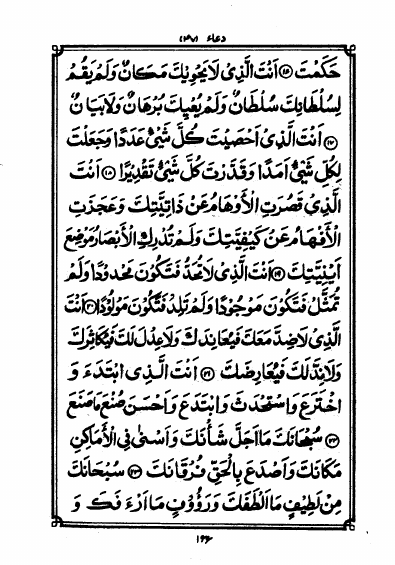 دعاء (۴۷)
حَكَمْتَ ⑯ اَنْتَ الَّذِیْ لَا یَحْوِیْكَ مَكَانٌ وَلَمْ یَقُمْ
لِسُلْطَانِكَ سُلْطَانٌ وَلَمْ یُعْیِكَ بُرْهَانٌ وَلَا بَیَانٌ
⑰ اَنْتَ الَّذِیْ اَحْصَیْتَ كُلَّ شَیْئٍ عَدَدًا وَجَعَلْتَ
لِكُلِّ شَیْئٍ اَمَدًا وَقَدَّرْتَ كُلَّ شَیْئٍ تَقْدِیْرًا ⑱ اَنْتَ
الَّذِیْ قَصُرَتِ الْاَوْهَامُ عَنْ ذَاتِیَّتِكَ وَعَجَزَتِ
الْاَفْهَامُ عَنْ كَیْفِیَّتِكَ وَلَمْ تُدْرِكِ الْاَبْصَارُ مَوْضِعَ
اَیْنِیَّتِكَ ⑲ اَنْتَ الَّذِیْ لَا تُحَدُّ فَتَكُوْنَ مَحْدُوْدًا وَلَمْ
تُمَثَّلْ فَتَكُوْنَ مَوْجُوْدًا وَلَمْ تَلِدْ فَتَكُوْنَ مَوْلُوْدًا ⑳ اَنْتَ
الَّذِیْ لَا ضِدَّ مَعَكَ فَیُعَانِدَكَ وَلَا عِدْلَ لَكَ فَیُكَاثِرَكَ
وَلَا نِدَّ لَكَ فَیُعَارِضَكَ ㉑ اَنْتَ الَّذِیْ ابْتَدَءَ وَ
اخْتَرَعَ وَاسْتَحْدَثَ وَابْتَدَعَ وَاَحْسَنَ صُنْعَ مَا صَنَعَ
㉒ سُبْحَانَكَ مَا اَجَلَّ شَاْنَكَ وَاَسْنٰی فِی الْاَمَاكِنِ
مَكَانَكَ وَاَصْدَعَ بِالْحَقِّ فُرْقَانَكَ ㉓ سُبْحَانَكَ
مِنْ لَطِیْفٍ مَا اَلْطَفَكَ وَرَؤُوْفٍ مَا اَرْءَفَكَ وَ